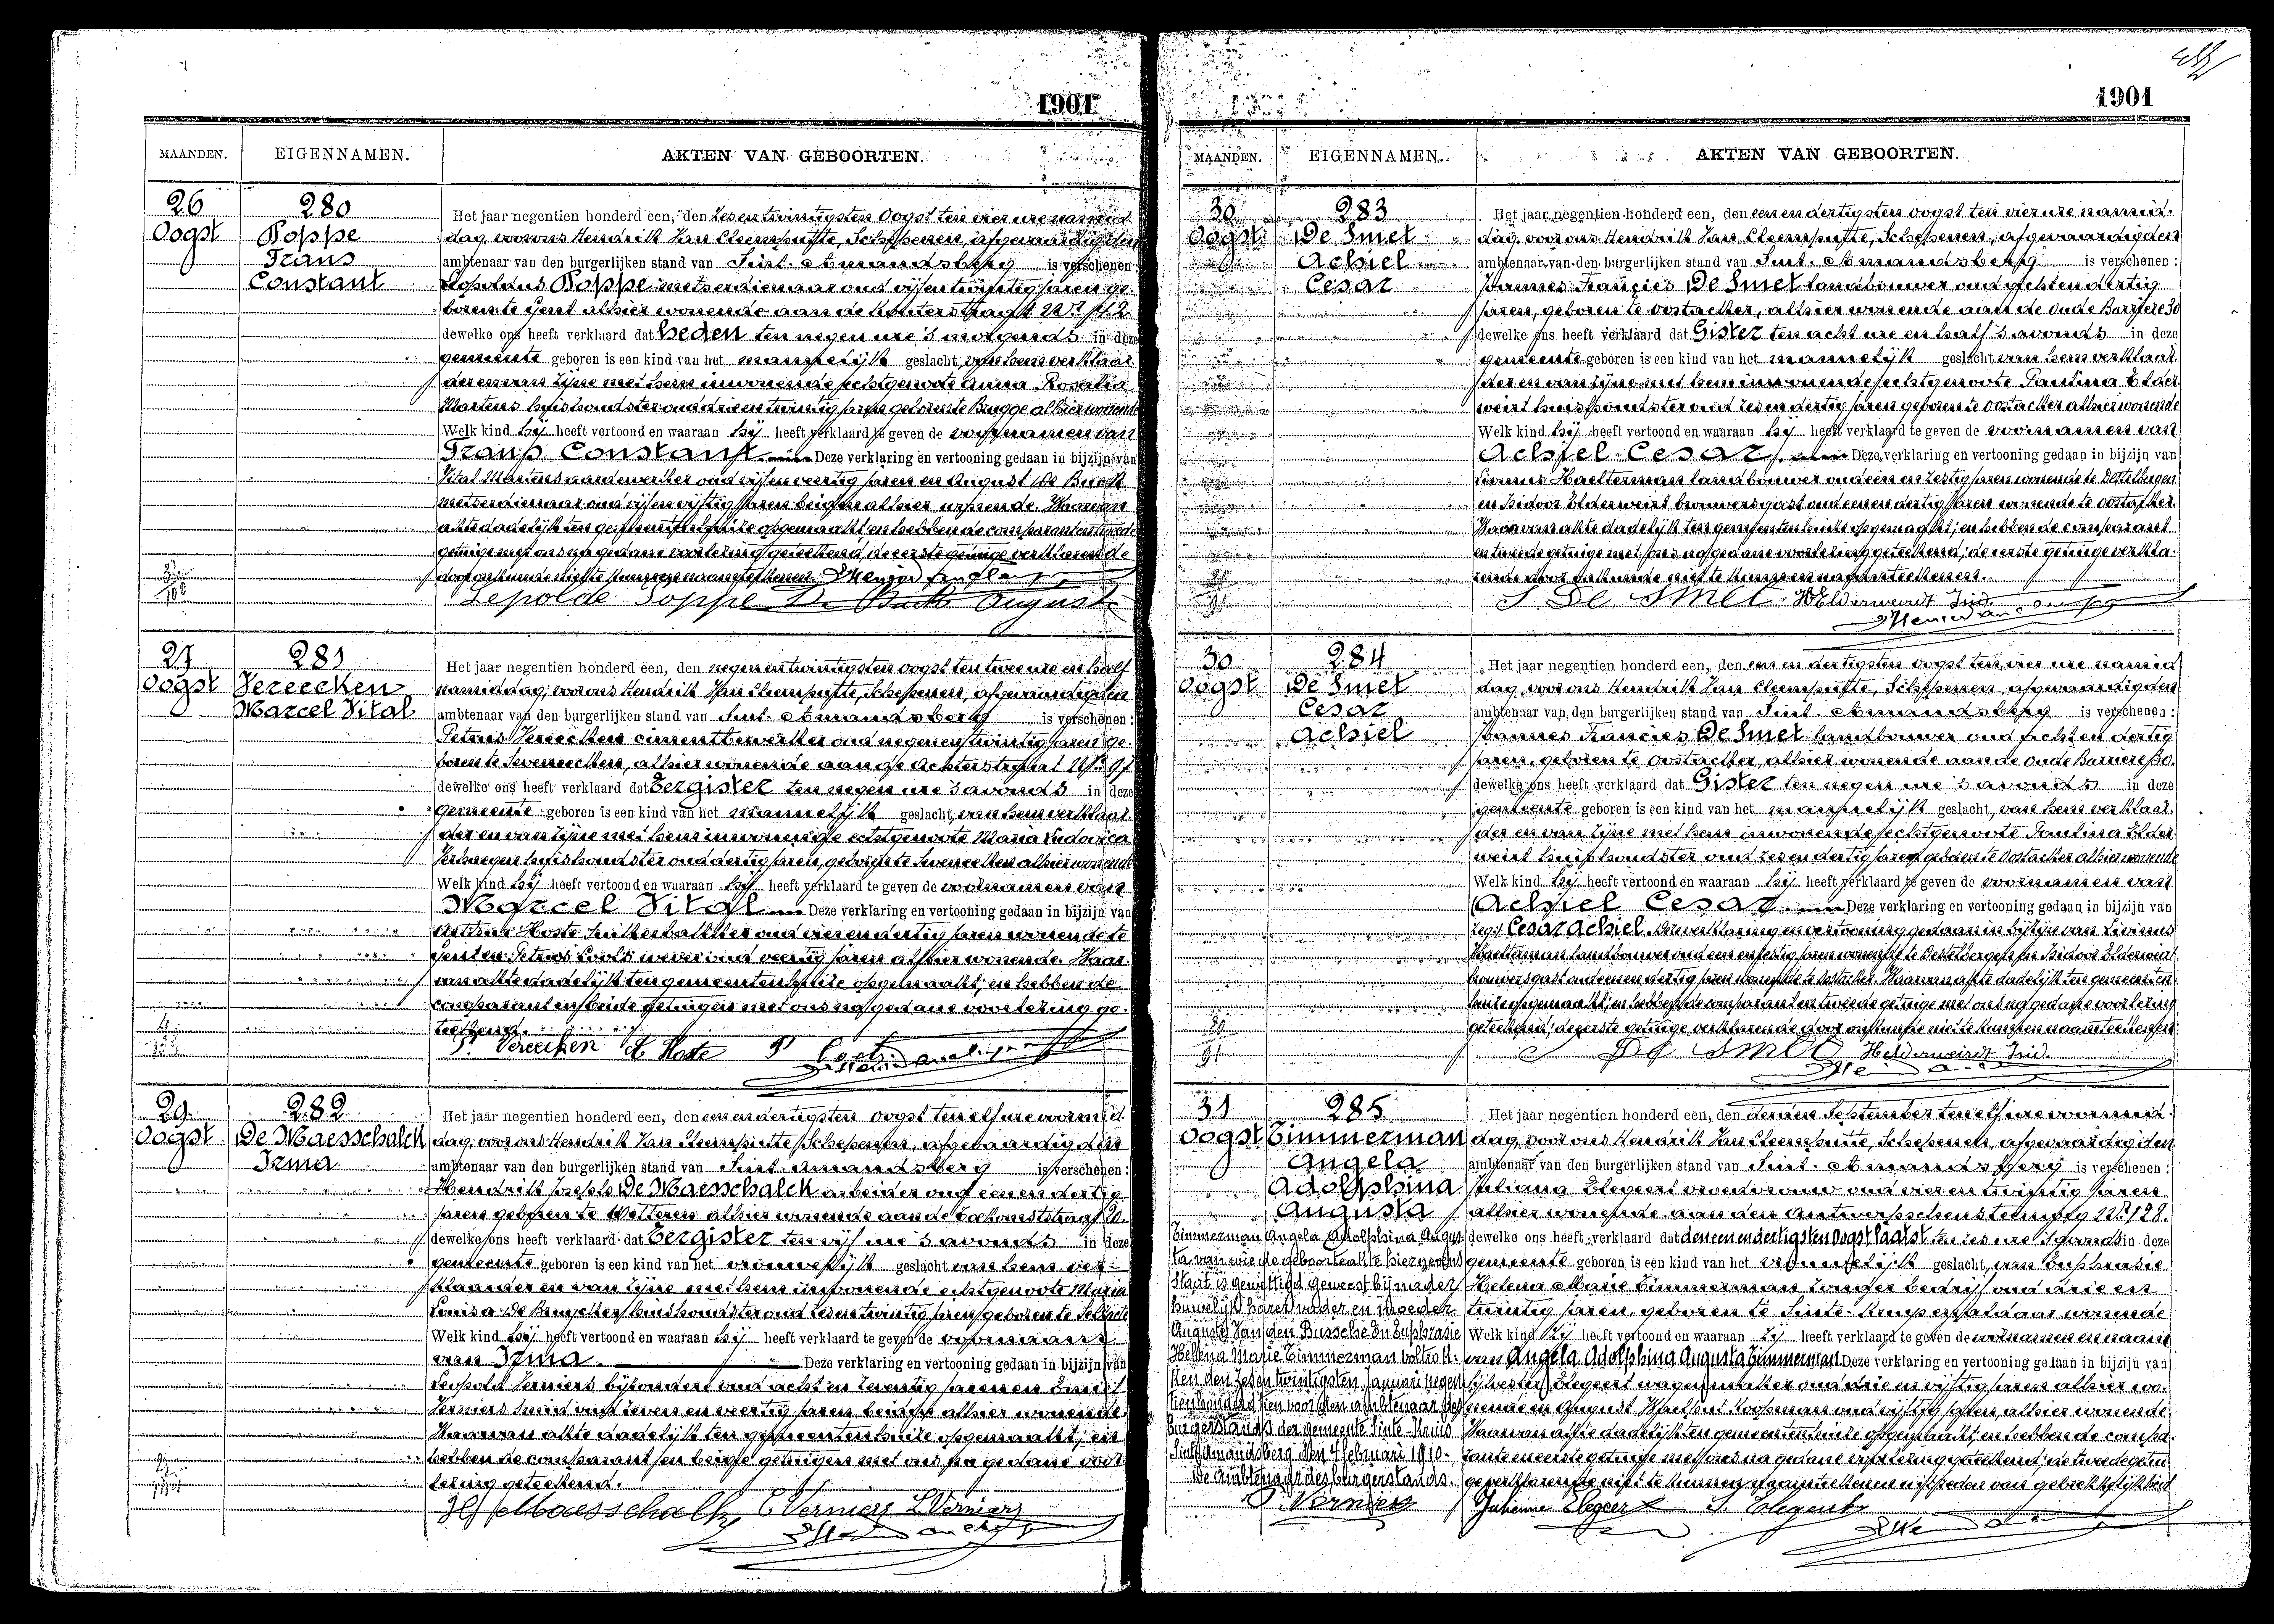 1901
MAANDEN.
EIGENNAMEN.
AKTEN VAN GEBOORTEN.
26
Oogst
280
Poppe
Frans
Constant
Het jaar negentien honderd een, den zesentwintigsten Oogst ten vier ure namid
dag, voor ons Hendrik Van Cleemputte, Schepenen, afgevaardigden
ambtenaar van den burgerlijken stand van Sint-Amandsberg is verschenen:
Leopoldus Poppe metserdienaar oud vijfentwintig jaren ge-
boren te Gent alhier wonende aan de
dewelke ons heeft verklaard dat heden ten negen ure 's morgends in deze
gemeente geboren is een kind van het mannelijk geslacht, van hem verklaar
der en van zijne met hem inwonende echtgenoote Anna Rosalia
Martens huishoudster oud drie en twintig jaren geboren te Brugge alhier wonende
Welk kind hij heeft vertoond en waaraan hij heeft verklaard te geven de voornamen van
Frans Constant. Deze verklaring en vertooning gedaan in bijzijn van
Vital Martens aardewerker oud vijfenveertig jaren en August De Buck
metserdienaar oud vijfenvijftig jaren beiden alhier wonende. Waarvan
akte dadelijk ten gemeentenhuize opgemaakt en hebben de comparant en tweede
getuige met ons na gedane voorlezing geteekend, de eerste getuige verklarende
door onkunde niet te kunnen naamteekenen.
Lepolde Poppe De Buck August
27
Oogst
281
Vereecken
Marcel Vital
Het jaar negentien honderd een, den negenentwintigsten oogst ten twee ure en half
namiddag, voor ons Hendrik Van Cleemputte, Schepenen, afgevaardigden
ambtenaar van den burgerlijken stand van Sint-Amandsberg is verschenen:
Petrus Vereecken cimentbewerker oud negenentwintig jaren ge-
boren te Seveneecken, alhier wonende aan de Achterstraat
dewelke ons heeft verklaard dat Eergister ten negen ure 's avonds in deze
gemeente geboren is een kind van het mannelijk geslacht, van hem verklaar
der en van zijne met hem inwonende echtgenoote Maria Ludovica
Verhaegen huishoudster oud dertig jaren, geboren te Seveneecken alhier wonende
Welk kind hij heeft vertoond en waaraan hij heeft verklaard te geven de voornamen van
Marcel Vital Deze verklaring en vertooning gedaan in bijzijn van
Arthur Hoste Suikerbakker oud vier en dertig jaren wonende te
Gent en Petrus wever oud veertig jaren alhier wonende. Waar-
van akte dadelijk ten gemeentenhuize opgemaakt; en hebben de
comparant en beide getuigen met ons na gedane voorlezing ge-
teekend.
P. Vereecken A. Hoste P
29
Oogst
282
De Maesschalck
Irma
Het jaar negentien honderd een, den een en dertigsten oogst ten elf ure voormid
dag, voor ons Hendrik Van Cleemputte, Schepenen, afgevaardigden
ambtenaar van den burgerlijken stand van Sint-Amandsberg is verschenen:
Hendrik Joseph De Maesschalck arbeider oud een en dertig
jaren geboren te Wetteren alhier wonende aan de
dewelke ons heeft verklaard dat Eergister ten vijf ure 's avonds in deze
gemeente geboren is een kind van het vrouwelijk geslacht van hem ver-
klaarder en van zijne met hem inwonende echtgenoote Maria
Louisa De huishoudster oud zesentwintig jaren geboren te
Welk kind hij heeft vertoond en waaraan hij heeft verklaard te geven de voornaam
van Irma. Deze verklaring en vertooning gedaan in bijzijn van
Leopold Verniers bijzondere oud acht en zeventig jaren en Emiel
Verniers smid oud zeven en veertig jaren beiden alhier wonende.
Waarvan akte dadelijk ten gemeentenhuize opgemaakt; en
hebben de comparant en beide getuigen met ons na gedane voor
lezing geteekend.
E. Verniers L. Verniers
1901
MAANDEN.
EIGENNAMEN.
AKTEN VAN GEBOORTEN.
30
Oogst
283
De Smet
Achiel
Cesar
Het jaar negentien honderd een, den een en dertigsten oogst ten vier ure namid-
dag, voor ons Hendrik Van Cleemputte, Schepenen, afgevaardigden
ambtenaar van den burgerlijken stand van Sint-Amandsberg is verschenen:
Joannes Francies De Smet landbouwer oud acht en dertig
jaren, geboren te Oostacker, alhier wonende aan de Oude Barriere 30
dewelke ons heeft verklaard dat Gister ten acht ure en half 's avonds in deze
gemeente geboren is een kind van het mannelijk geslacht van hem verklaar
der en van zijne met hem inwonende echtgenoote Paulina Elder
weirt huishoudster oud zes en dertig jaren geboren te Oostacker alhier wonende
Welk kind hij heeft vertoond en waaraan hij heeft verklaard te geven de voornamen van
Achiel Cesar. Deze verklaring en vertooning gedaan in bijzijn van
Livinus Haelterman landbouwer oud een en zestig jaren wonende te Destelbergen
en Isidoor Elderweirt brouwersgast oud een en dertig jaren wonende te Oostacker.
Waarvan akte dadelijk ten gemeentenhuize opgemaakt; en hebben de comparant
en tweede getuige met ons na gedane voorlezing geteekend; de eerste getuige verkla-
rende door onkunde niet te kunnen naamteekenen.
J De Smet
30
Oogst
284
De Smet
Cesar
Achiel
Het jaar negentien honderd een, den een en dertigsten oogst ten vier ure namid
dag, voor ons Hendrik Van Cleemputte, Schepenen, afgevaardigden
ambtenaar van den burgerlijken stand van Sint-Amandsberg is verschenen:
Joannes Francies De Smet landbouwer oud acht en dertig
jaren, geboren te Oostacker, alhier wonende aan de Oude Barriere 30.
dewelke ons heeft verklaard dat Gister ten negen ure 's avonds in deze
gemeente geboren is een kind van het mannelijk geslacht, van hem verklaar-
der en van zijne met hem inwonende echtgenoote Paulina Elder
weirt huishoudster oud zes en dertig jaren geboren te Oostacker alhier wonende
Welk kind hij heeft vertoond en waaraan hij heeft verklaard te geven de voornamen van
Achiel Cesar. Deze verklaring en vertooning gedaan in bijzijn van
Cesar Achiel. Deze verklaring en vertooning gedaan in bijzijn van Livinus
Haelterman landbouwer oud een en zestig jaren wonende te Destelbergen en Isidoor Elderweirt
brouwersgast oud een en dertig jaren wonende te Oostacker. Waarvan akte dadelijk ten gemeenten-
huize opgemaakt; en hebben de comparant en tweede getuige met ons na gedane voorlezing
geteekend; de eerste getuige verklarende door onkunde niet te kunnen naamteekenen
De Smet
31
Oogst
285
Timmerman
Angela
Adolphina
Augusta
Timmerman Angela Adolphina Augus-
ta van wie de geboorteakte hiernevens
staat is gewettigd geweest bij nader
huwelijk harer vader en moeder
Auguste Van den Bussche En Euphrasie
Helena Marie Timmerman voltrok-
ken den zesentwintigsten Januari negen
tien honderd tien voor den ambtenaar des
burgerstands der gemeente Sinte-Kruis
Sint Amandsberg den 4 februari 1910.
De ambtenaar des burgerstands.
Verniers
Het jaar negentien honderd een, den derden September ten elf ure voormid-
dag, voor ons Hendrik Van Cleemputte, Schepenen, afgevaardigden
ambtenaar van den burgerlijken stand van Sint-Amandsberg is verschenen:
Juliana Elegeert vroedvrouw oud vier en twintig jaren
alhier wonende aan den Antwerpschensteenweg No 128.
dewelke ons heeft verklaard dat den een en dertigsten Oogst laatst ten zes ure 's avonds in deze
gemeente geboren is een kind van het vrouwelijk geslacht, van Euphrasie
Helena Marie Timmerman zonder bedrijf oud drie en
twintig jaren, geboren te Sinte-Kruis en aldaar wonende
Welk kind zij heeft vertoond en waaraan zij heeft verklaard te geven de voornamen en naam
van Angela Adolphina Augusta Timmerman. Deze verklaring en vertooning gedaan in bijzijn van
Sylvester Elegeert wagenmaker oud drie en vijftig jaren alhier wo-
nende en August koopman oud vijftig jaren, alhier wonende
Waarvan akte dadelijk ten gemeentenhuize opgemaakt; en hebben de compa-
rante en eerste getuige met ons na gedane voorlezing geteekend; de tweede getui
ge verklarende niet te kunnen naamteekenen uit reden van gebrekkelijkheid
Julienne Elegeert S. Elegeert